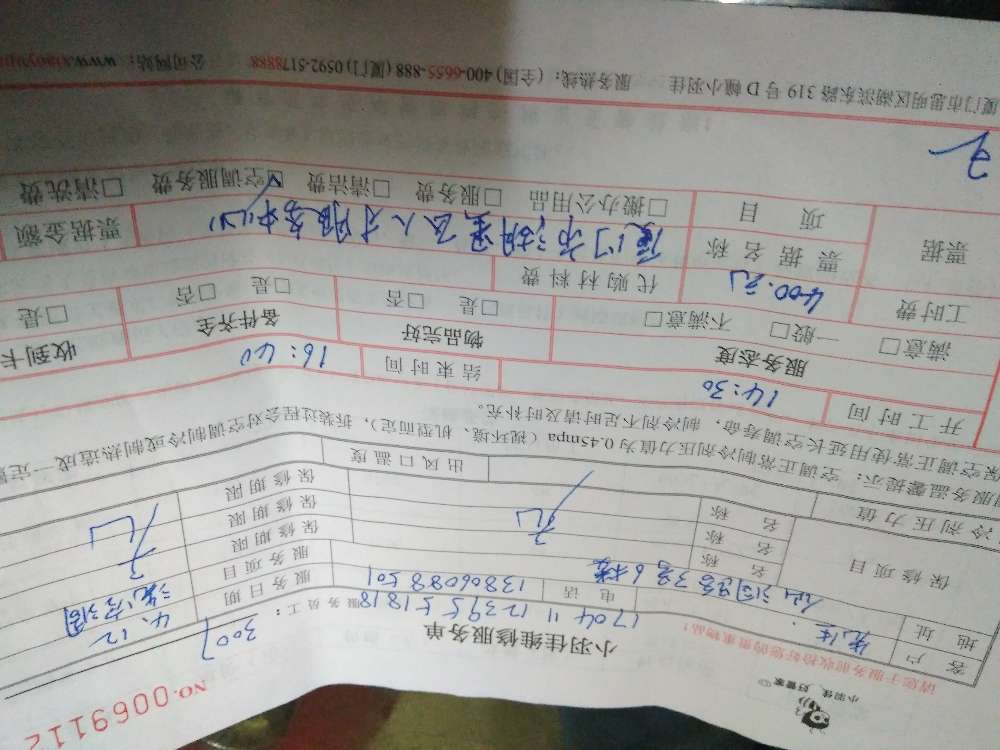 小羽佳, 好管家
NO.0069112
请您于服务前收拾好您的贵重物品!
小羽佳维修服务单
服务员工: 3007
170411123955181818
客户 先生 电话 13806088501 服务日期 4.12
地址 仙洞路3号6楼 服务项目 洗空调
保修项目 名称 无 保修期限 无
名称 保修期限
名称 保修期限
冷剂压力值 出风口温度
服务温馨提示: 空调正常制冷剂压力值为0.45mpa (视环境、机型而定), 拆装过程会对空调制冷或制热造成一定
保空调正常使用延长空调寿命, 制冷剂不足时请及时补充。
开工时间 14:30 结束时间 16:40
服务态度 物品完好 备件齐全 收到卡
满意□ 一般□ 不满意□ □是 □否 □是 □否 □是
工时费 400.元 代购材料费
票据 票据名称 厦门市湖里区人才服务中心 票据金额
项目 □搬办公用品 □服务费 □清洁费 ☑空调服务费 □清洗费
厦门市思明区湖滨东路319号D幢小羽佳 服务热线: (全国) 400-6655-888 (厦门) 0592-5178888 公司网站: www.xiaoyu